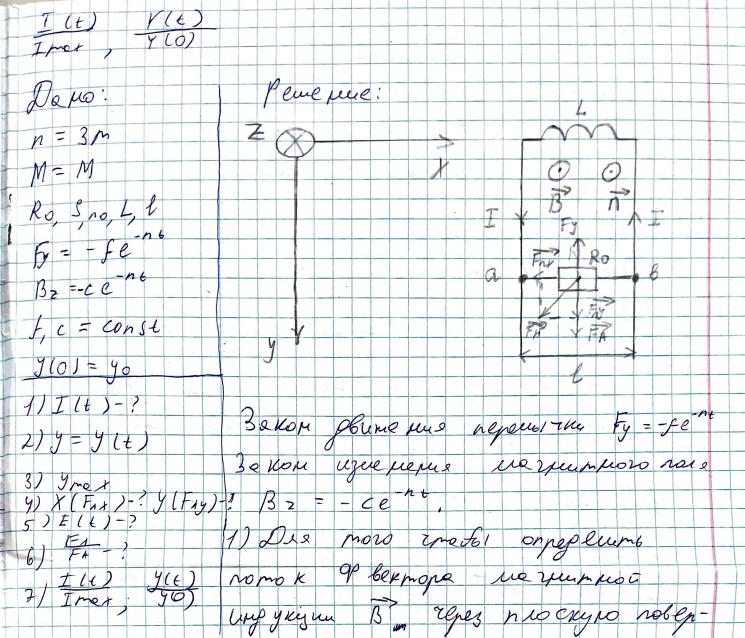 I(t)/Imax, V(t)/Y(0)
Дано:
n = 3m
M = M
R0, S, n0, L, l
Fy = -fe^-nt
Bz = -ce^-nt
f, c = const
y(0) = y0
1) I(t) - ?
2) y = y(t)
3) ymax
4) X(FAx) - ? Y(FAy) - ?
5) E(t) - ?
6) FЛ/FA - ?
7) I(t)/Imax; y(t)/y(0)
Решение:
Z
X
y
L
B
n
I
Fy
I
R0
a
в
l
Закон движения перемычки Fy = -fe^-nt
Закон изменения магнитного поля
Bz = -ce^-nt.
1) Для того чтобы определить
поток Ф вектора магнитной
индукции B через плоскую повер-